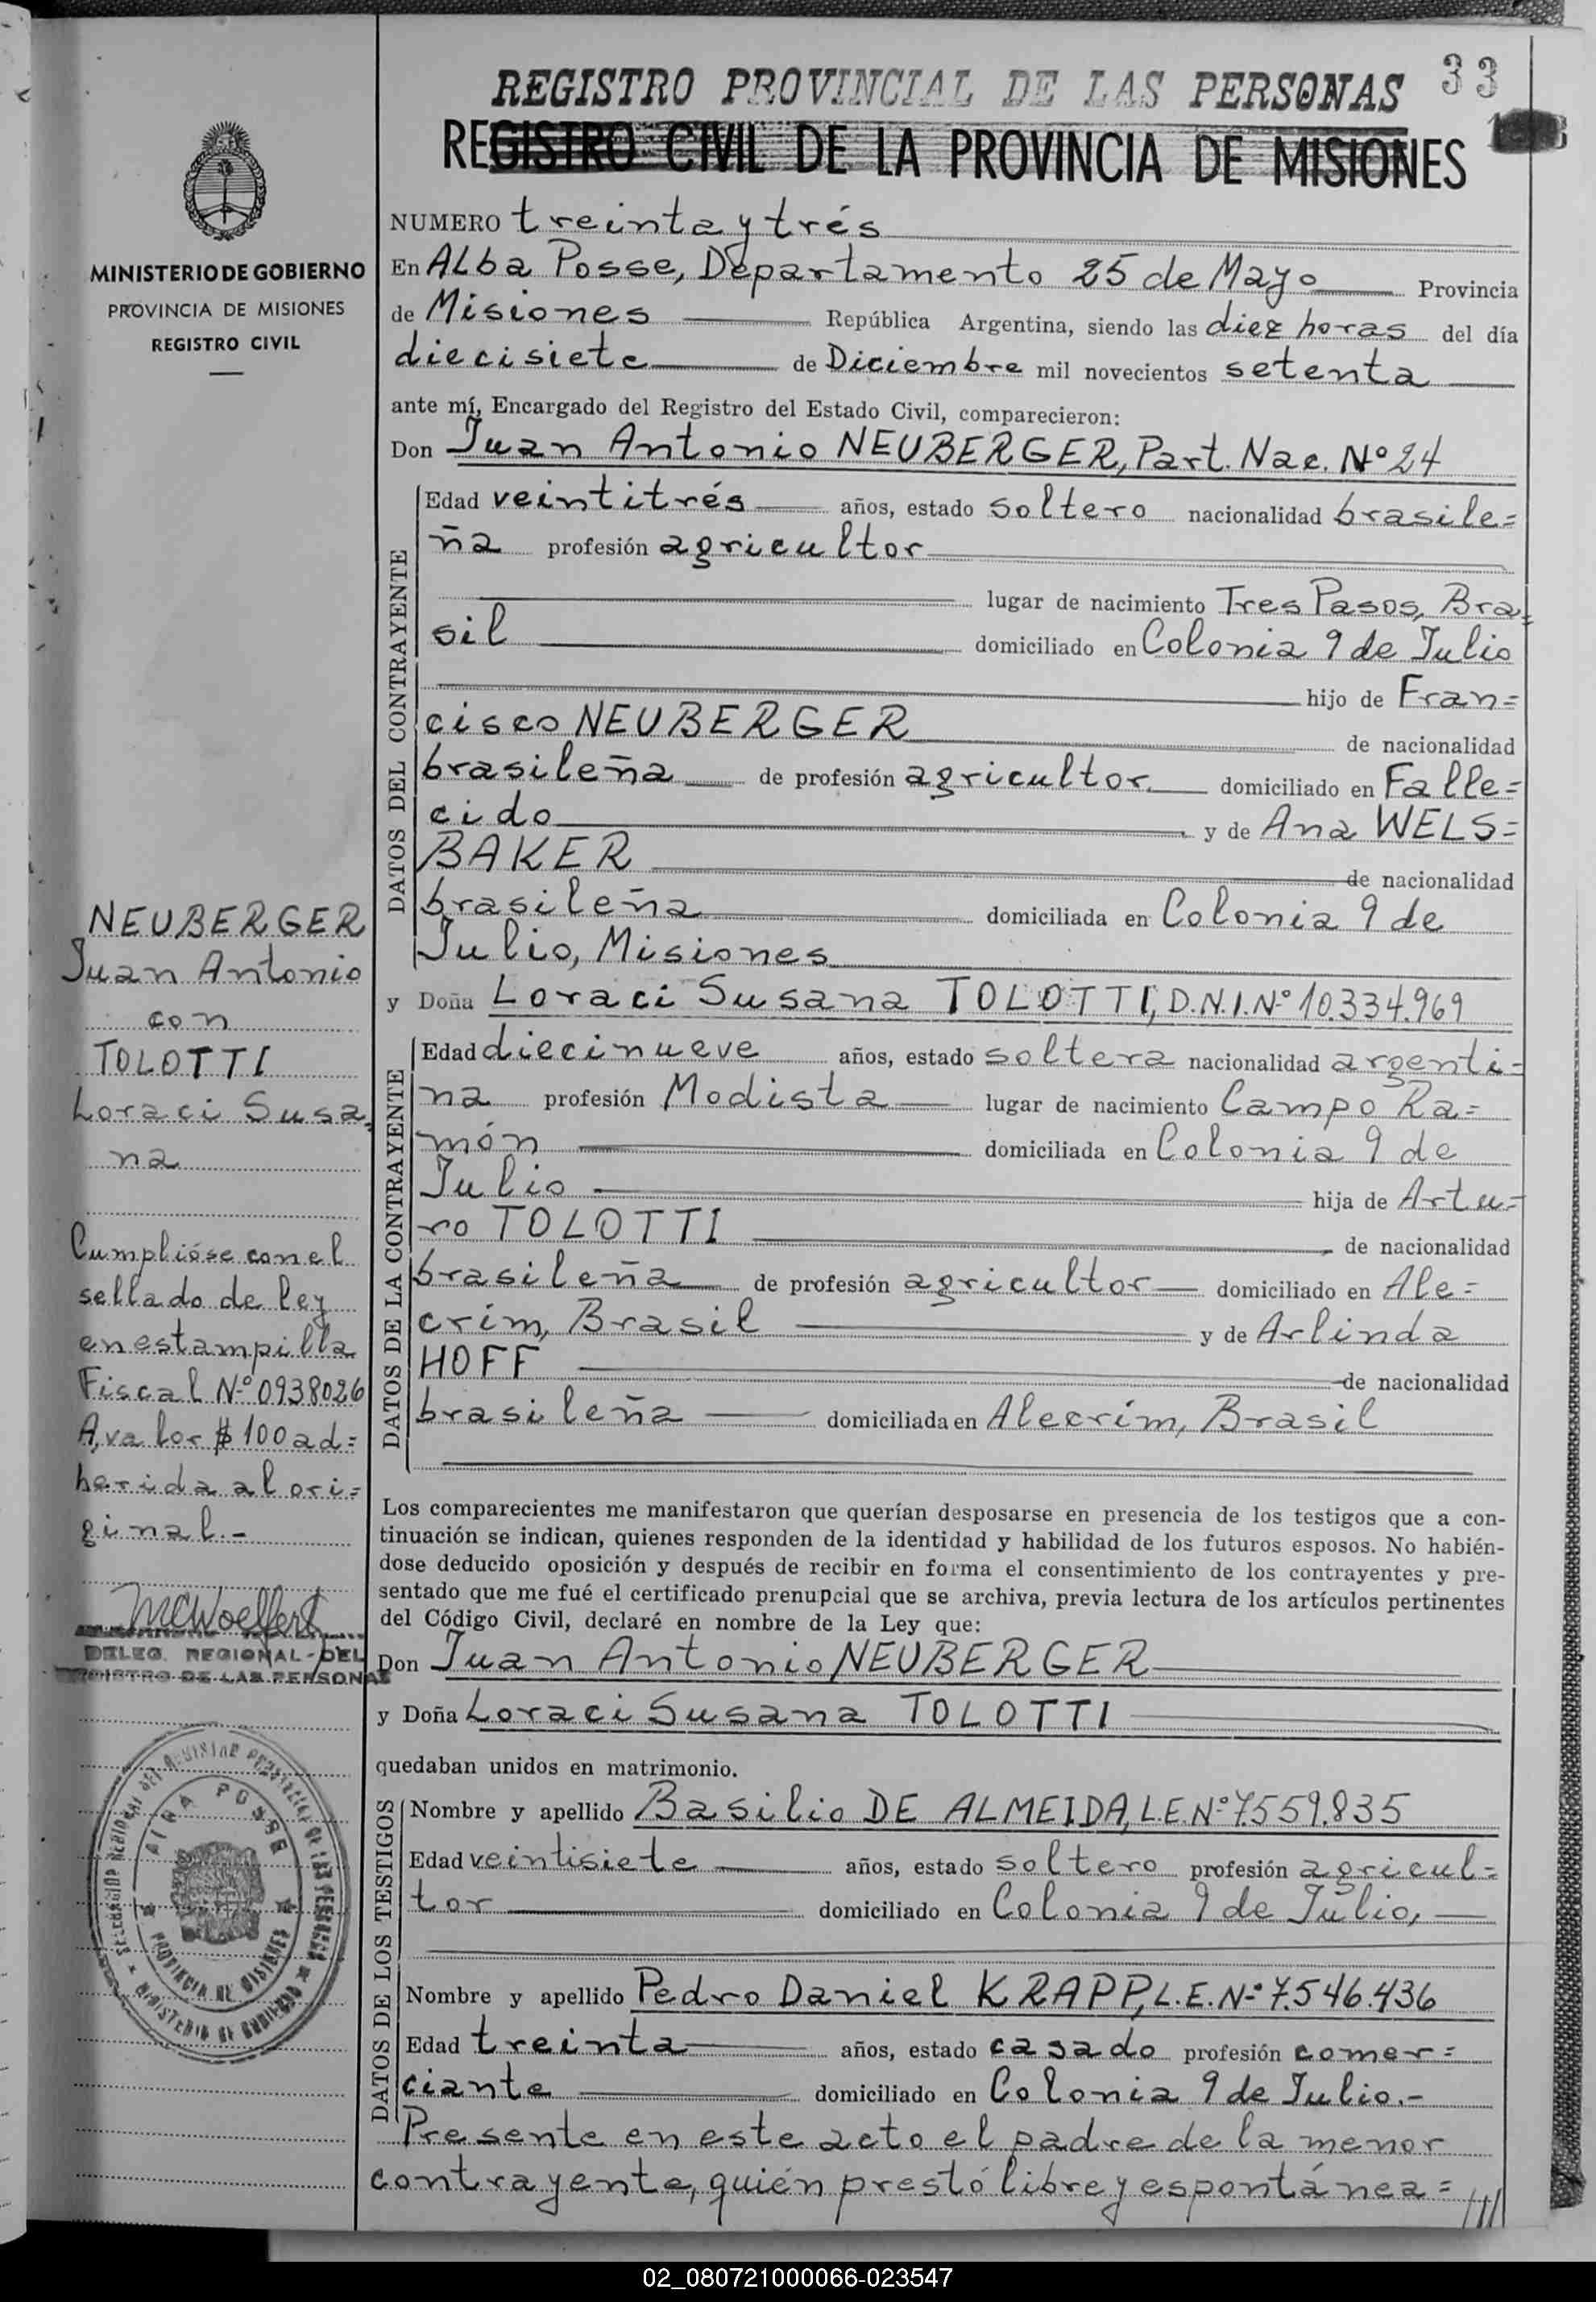 REGISTRO PROVINCIAL DE LAS PERSONAS 33
REGISTRO CIVIL DE LA PROVINCIA DE MISIONES
MINISTERIO DE GOBIERNO
PROVINCIA DE MISIONES
REGISTRO CIVIL
NUMERO treinta y trés
En Alba Posse, Departamento 25 de Mayo Provincia
de Misiones República Argentina, siendo las diez horas del día
diecisiete de Diciembre mil novecientos setenta
ante mí, Encargado del Registro del Estado Civil, comparecieron:
Don Juan Antonio NEUBERGER, Part. Nac. Nº 24
DATOS DEL CONTRAYENTE
Edad veintitrés años, estado soltero nacionalidad brasile=
ña profesión agricultor
lugar de nacimiento Tres Pasos, Bra=
sil domiciliado en Colonia 9 de Julio
hijo de Fran=
cisco NEUBERGER de nacionalidad
brasileña de profesión agricultor domiciliado en Falle=
cido y de Ana WELS=
BAKER de nacionalidad
brasileña domiciliada en Colonia 9 de
Julio, Misiones
y Doña Loraci Susana TOLOTTI, D.N.I. Nº 10.334.969
DATOS DE LA CONTRAYENTE
Edad diecinueve años, estado soltera nacionalidad argenti=
na profesión Modista lugar de nacimiento Campo Ra=
món domiciliada en Colonia 9 de
Julio hija de Artu=
ro TOLOTTI de nacionalidad
brasileña de profesión agricultor domiciliado en Ale=
crim, Brasil y de Arlinda
HOFF de nacionalidad
brasileña domiciliada en Alecrim, Brasil
Los comparecientes me manifestaron que querían desposarse en presencia de los testigos que a con-
tinuación se indican, quienes responden de la identidad y habilidad de los futuros esposos. No habién-
dose deducido oposición y después de recibir en forma el consentimiento de los contrayentes y pre-
sentado que me fué el certificado prenupcial que se archiva, previa lectura de los artículos pertinentes
del Código Civil, declaré en nombre de la Ley que:
Don Juan Antonio NEUBERGER
y Doña Loraci Susana TOLOTTI
quedaban unidos en matrimonio.
DATOS DE LOS TESTIGOS
Nombre y apellido Basilio DE ALMEIDA, L.E. Nº 7.559.835
Edad veintisiete años, estado soltero profesión agricul=
tor domiciliado en Colonia 9 de Julio,
Nombre y apellido Pedro Daniel KRAPP, L.E. Nº 7.546.436
Edad treinta años, estado casado profesión comer=
ciante domiciliado en Colonia 9 de Julio.-
Presente en este acto el padre de la menor
contrayente, quién prestó libre y espontánea=
NEUBERGER
Juan Antonio
con
TOLOTTI
Loraci Susa=
na
Cumplióse con el
sellado de ley
en estampilla
Fiscal Nº 0938026
A, valor $ 100 ad=
herida al ori=
ginal.-
MCWoelfert
DELEG. REGIONAL DEL
REGISTRO DE LAS PERSONAS
DELEGACION REGIONAL DEL REGISTRO PROVINCIAL DE LAS PERSONAS
ALBA POSSE
PROVINCIA DE MISIONES
MINISTERIO DE GOBIERNO
02_080721000066-023547